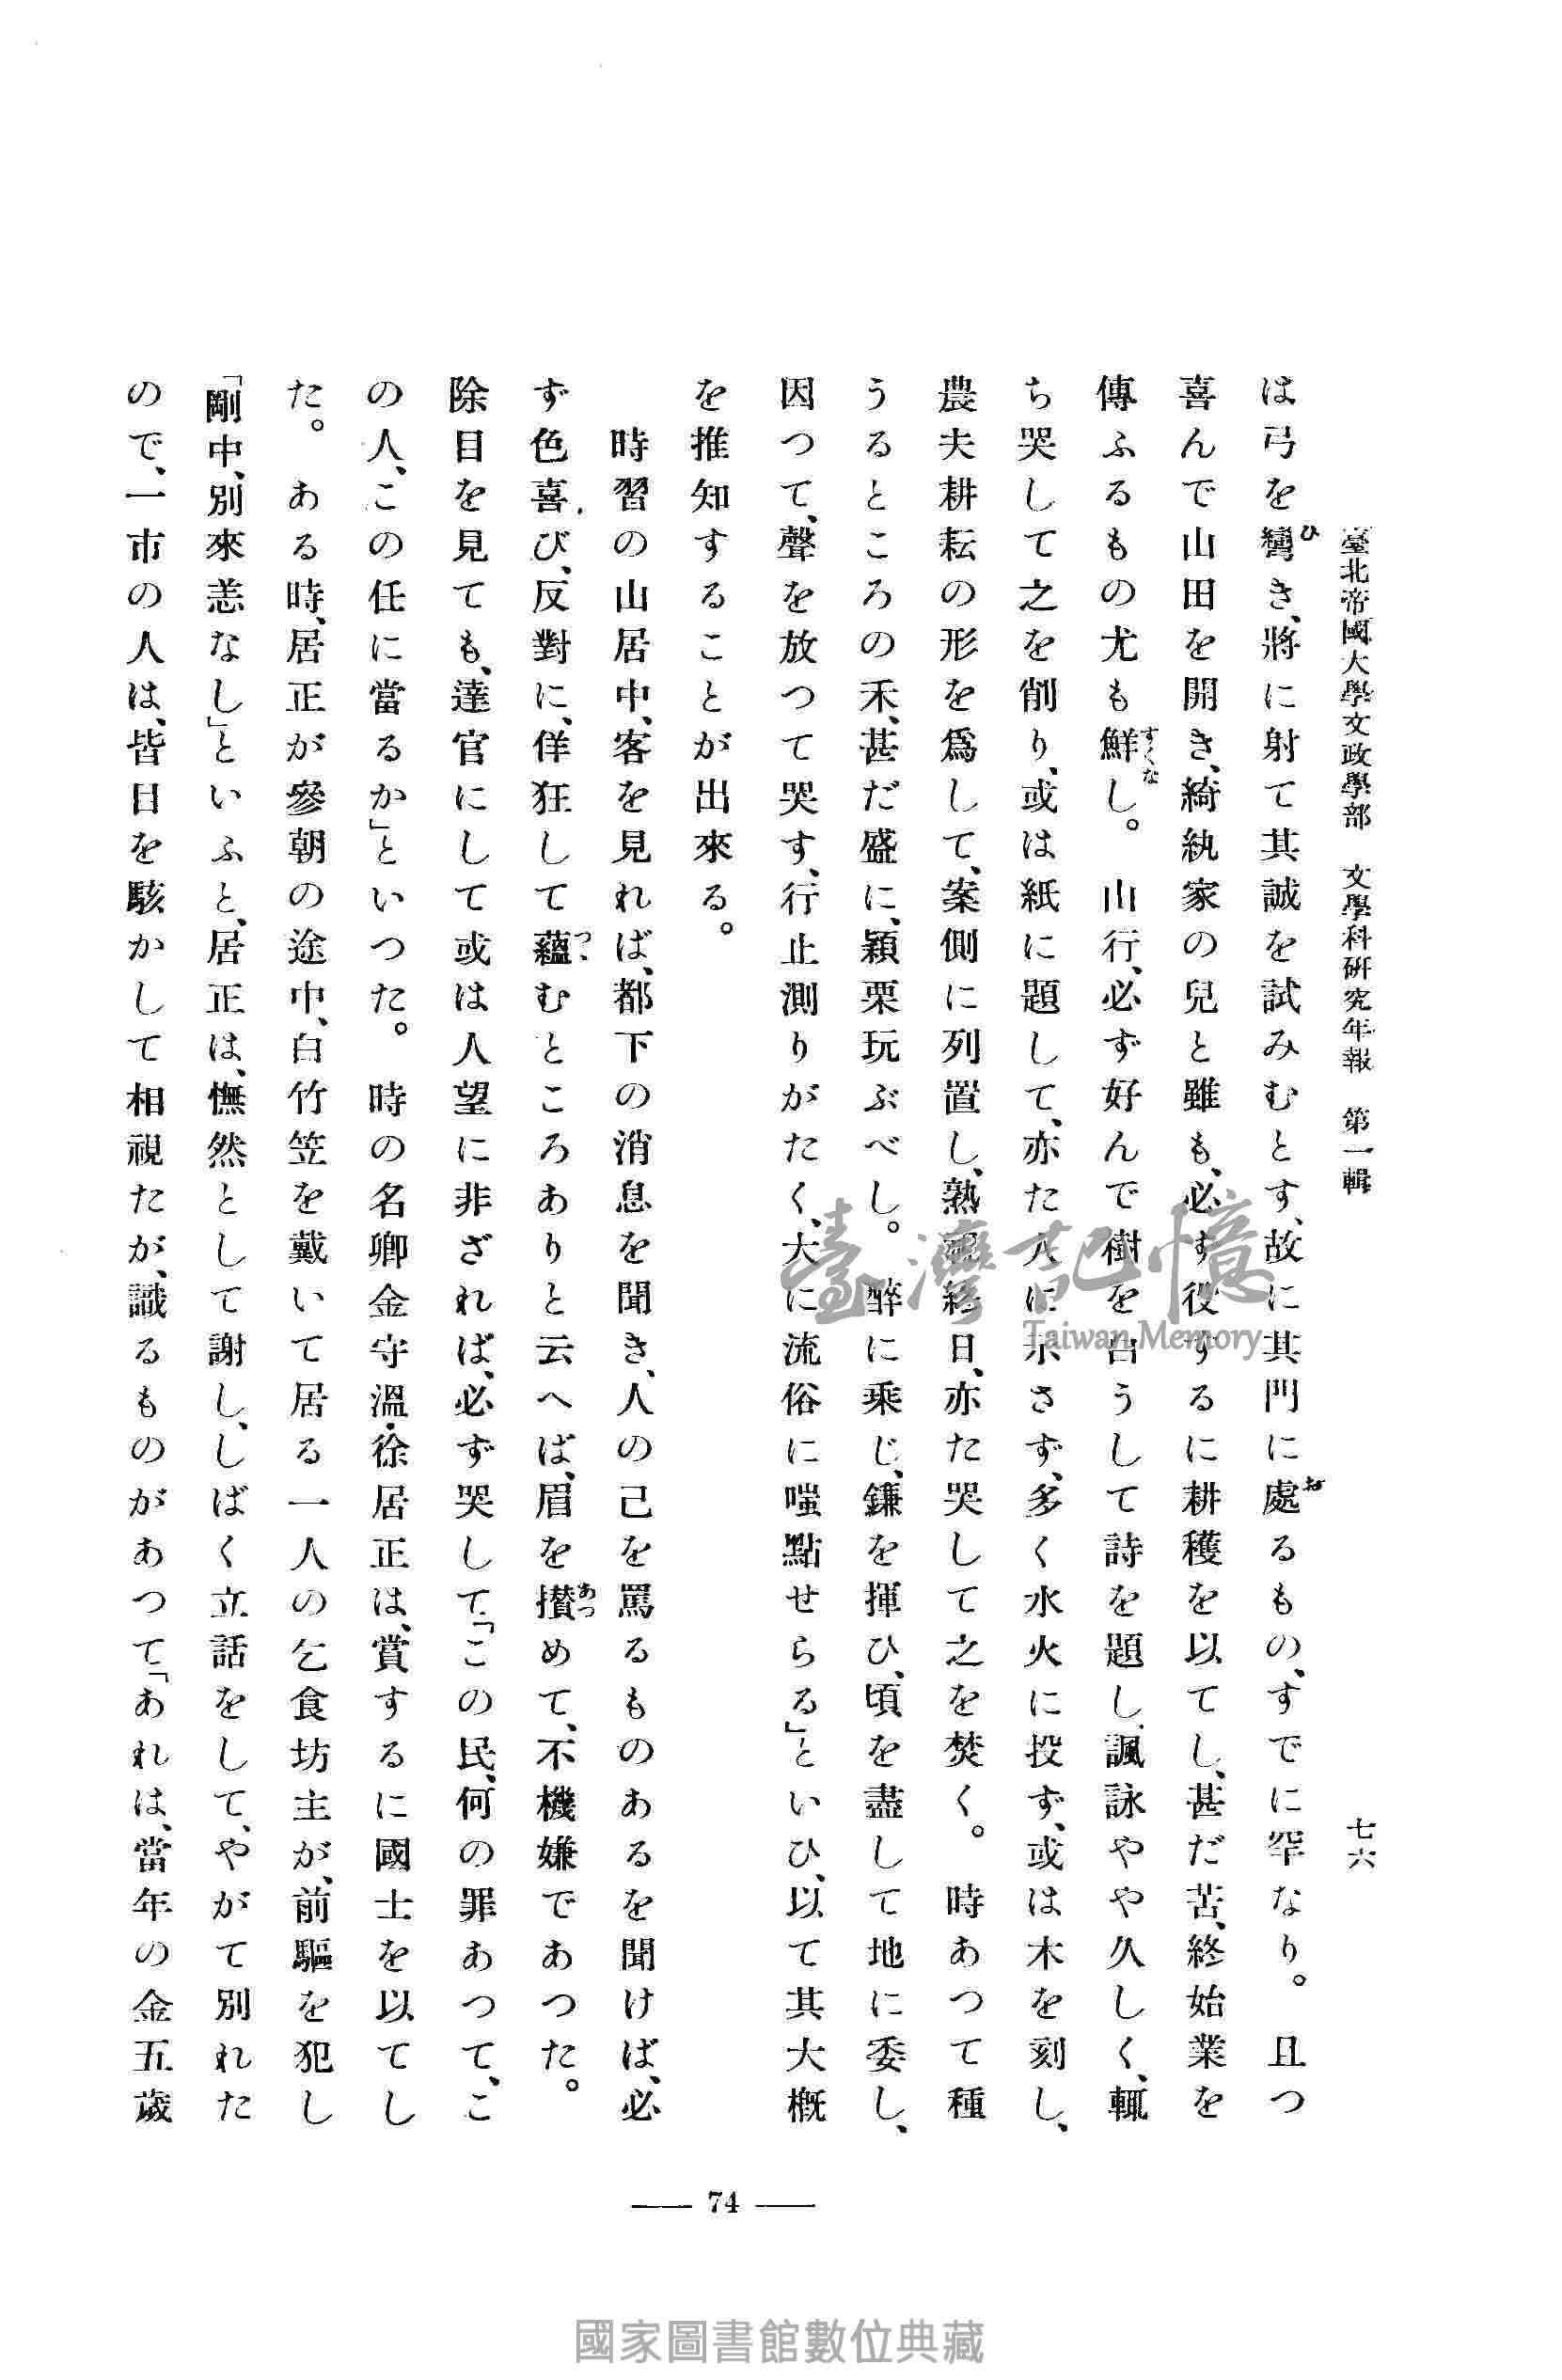 臺北帝國大學文政學部　文學科硏究年報　第一輯
七六
は弓を彎き、將に射て其誠を試みむとす、故に其門に處るもの、すでに罕なり。　且つ
喜んで山田を開き、綺紈家の兒と雖も、必ず役するに耕穫を以てし、甚だ苦、終始業を
傳ふるもの尤も鮮し。　山行、必ず好んで樹を白うして詩を題し、諷詠やや久しく、輒
ち哭して之を削り、或は紙に題して、亦た人に示さず、多く水火に投ず、或は木を刻し、
農夫耕耘の形を爲して、案側に列置し、熟視終日、亦た哭して之を焚く。　時あつて種
うるところの禾、甚だ盛に、穎栗玩ぶべし。　醉に乘じ、鎌を揮ひ、頃を盡して地に委し、
因つて、聲を放つて哭す、行止測りがたく、大に流俗に嗤點せらる」といひ、以て其大槪
を推知することが出來る。
時習の山居中、客を見れば、都下の消息を聞き、人の己を罵るものあるを聞けば、必
ず色喜び、反對に、佯狂して蘊むところありと云へば、眉を攅めて、不機嫌であつた。
除目を見ても、達官にして或は人望に非ざれば、必ず哭して、「この民、何の罪あつて、こ
の人、この任に當るか」といつた。　時の名卿金守溫・徐居正は、賞するに國士を以てし
た。　ある時、居正が參朝の途中、白竹笠を戴いて居る一人の乞食坊主が、前驅を犯し
「剛中、別來恙なし」といふと、居正は、憮然として謝し、しばく立話をして、やがて別れた
ので、一市の人は、皆目を駭かして相視たが、識るものがあつて「あれは、當年の金五歲
ひ
お
すくな
つゝ
あつ
74
臺灣記憶
Taiwan Memory
國家圖書館數位典藏